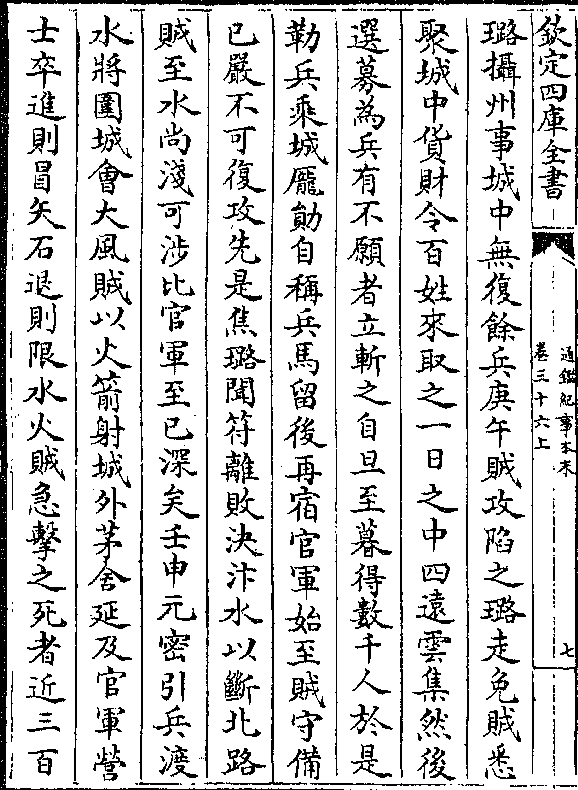 欽定四庫全書
通鑑紀事本末
卷三十六上
七
璐攝州事城中無復餘兵庚午賊攻陷之璐走免賊悉
聚城中貨財令百姓來取之一日之中四遠雲集然後
選募為兵有不願者立斬之自旦至暮得數千人於是
勒兵乘城龎勛自稱兵馬留後再宿官軍始至賊守備
已嚴不可復攻先是焦璐聞符離敗決汴水以斷北路
賊至水尚淺可涉比官軍至已深矣壬申元密引兵渡
水將圍城會大風賊以火箭射城外茅舍延及官軍營
士卒進則冒矢石退則限水火賊急擊之死者近三百